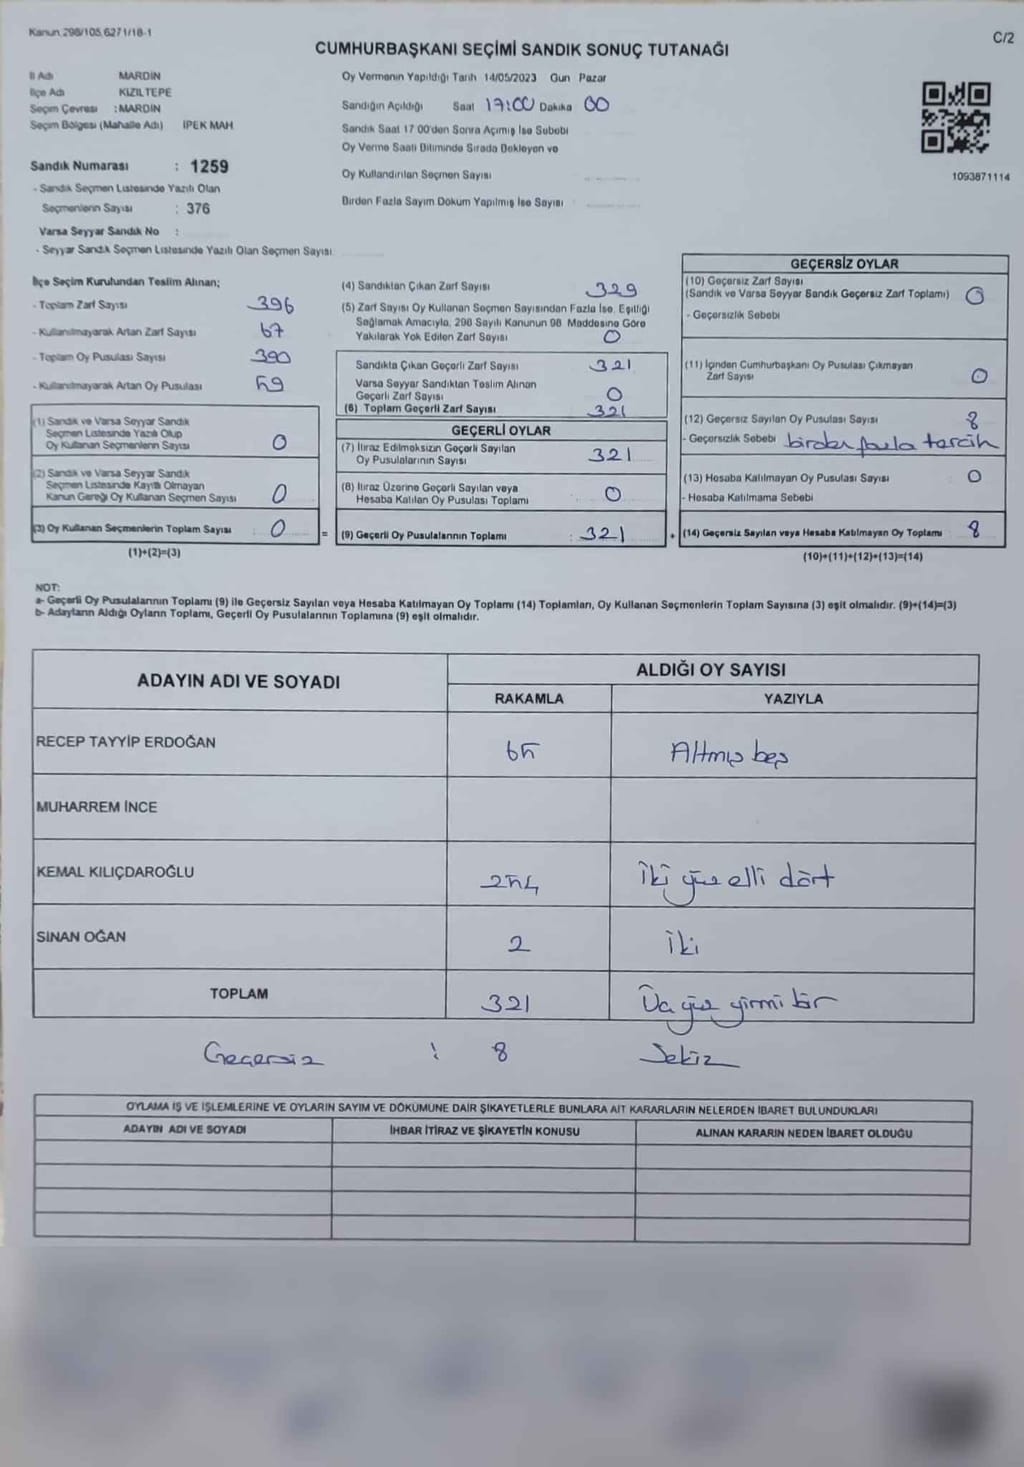 Kanun 298/105,6271/18-1
C/2
CUMHURBAŞKANI SEÇİMİ SANDIK SONUÇ TUTANAĞI
İl Adı MARDİN
İlçe Adı KIZILTEPE
Seçim Çevresi : MARDİN
Seçim Bölgesi (Mahalle Adı) İPEK MAH
Oy Vermenin Yapıldığı Tarih 14/05/2023 Gün Pazar
Sandığın Açıldığı Saat 17:00 Dakika 00
Sandık Saat 17 00'den Sonra Açımış İse Sebebi
Oy Verme Saati Bitiminde Sırada Bekleyen ve
Oy Kullandırılan Seçmen Sayısı
Birden Fazla Sayım Döküm Yapılmış İse Sayısı
1093871114
Sandık Numarası : 1259
- Sandık Seçmen Listesinde Yazılı Olan
Seçmenlerin Sayısı : 376
Varsa Seyyar Sandık No :
- Seyyar Sandık Seçmen Listesinde Yazılı Olan Seçmen Sayısı
İlçe Seçim Kurulundan Teslim Alınan;
- Toplam Zarf Sayısı 396
- Kullanılmayarak Artan Zarf Sayısı 67
- Toplam Oy Pusulası Sayısı 390
- Kullanılmayarak Artan Oy Pusulası 59
(1) Sandık ve Varsa Seyyar Sandık
Seçmen Listesinde Yazılı Olup
Oy Kullanan Seçmenlerin Sayısı 0
(2) Sandık ve Varsa Seyyar Sandık
Seçmen Listesinde Kayıtlı Olmayan
Kanun Gereği Oy Kullanan Seçmen Sayısı 0
(3) Oy Kullanan Seçmenlerin Toplam Sayısı : 0 =
(1)+(2)=(3)
(4) Sandıktan Çıkan Zarf Sayısı 329
(5) Zarf Sayısı Oy Kullanan Seçmen Sayısından Fazla İse, Eşitliği
Sağlamak Amacıyla, 298 Sayılı Kanunun 98 Maddesine Göre
Yakılarak Yok Edilen Zarf Sayısı 0
Sandıkta Çıkan Geçerli Zarf Sayısı 321
Varsa Seyyar Sandıktan Teslim Alınan
Geçerli Zarf Sayısı 0
(6) Toplam Geçerli Zarf Sayısı 321
GEÇERLİ OYLAR
(7) İtiraz Edilmeksizin Geçerli Sayılan
Oy Pusulalarının Sayısı 321
(8) İtiraz Üzerine Geçerli Sayılan veya
Hesaba Katılan Oy Pusulası Toplamı 0
(9) Geçerli Oy Pusulalarının Toplamı : 321 +
GEÇERSİZ OYLAR
(10) Geçersiz Zarf Sayısı
(Sandık ve Varsa Seyyar Sandık Geçersiz Zarf Toplamı) 0
- Geçersizlik Sebebi
(11) İçinden Cumhurbaşkanı Oy Pusulası Çıkmayan
Zarf Sayısı 0
(12) Geçersiz Sayılan Oy Pusulası Sayısı 8
- Geçersizlik Sebebi birden fazla tercih
(13) Hesaba Katılmayan Oy Pusulası Sayısı 0
- Hesaba Katılmama Sebebi
(14) Geçersiz Sayılan veya Hesaba Katılmayan Oy Toplamı 8
(10)+(11)+(12)+(13)=(14)
NOT:
a- Geçerli Oy Pusulalarının Toplamı (9) ile Geçersiz Sayılan veya Hesaba Katılmayan Oy Toplamı (14) Toplamları, Oy Kullanan Seçmenlerin Toplam Sayısına (3) eşit olmalıdır. (9)+(14)=(3)
b- Adayların Aldığı Oyların Toplamı, Geçerli Oy Pusulalarının Toplamına (9) eşit olmalıdır.
ADAYIN ADI VE SOYADI ALDIĞI OY SAYISI
RAKAMLA YAZIYLA
RECEP TAYYİP ERDOĞAN 65 Altmış beş
MUHARREM İNCE
KEMAL KILIÇDAROĞLU 254 İki yüz elli dört
SİNAN OĞAN 2 İki
TOPLAM 321 Üç yüz yirmi bir
Geçersiz : 8 Sekiz
OYLAMA İŞ VE İŞLEMLERİNE VE OYLARIN SAYIM VE DÖKÜMÜNE DAİR ŞİKAYETLERLE BUNLARA AİT KARARLARIN NELERDEN İBARET BULUNDUKLARI
ADAYIN ADI VE SOYADI İHBAR İTİRAZ VE ŞİKAYETİN KONUSU ALINAN KARARIN NEDEN İBARET OLDUĞU